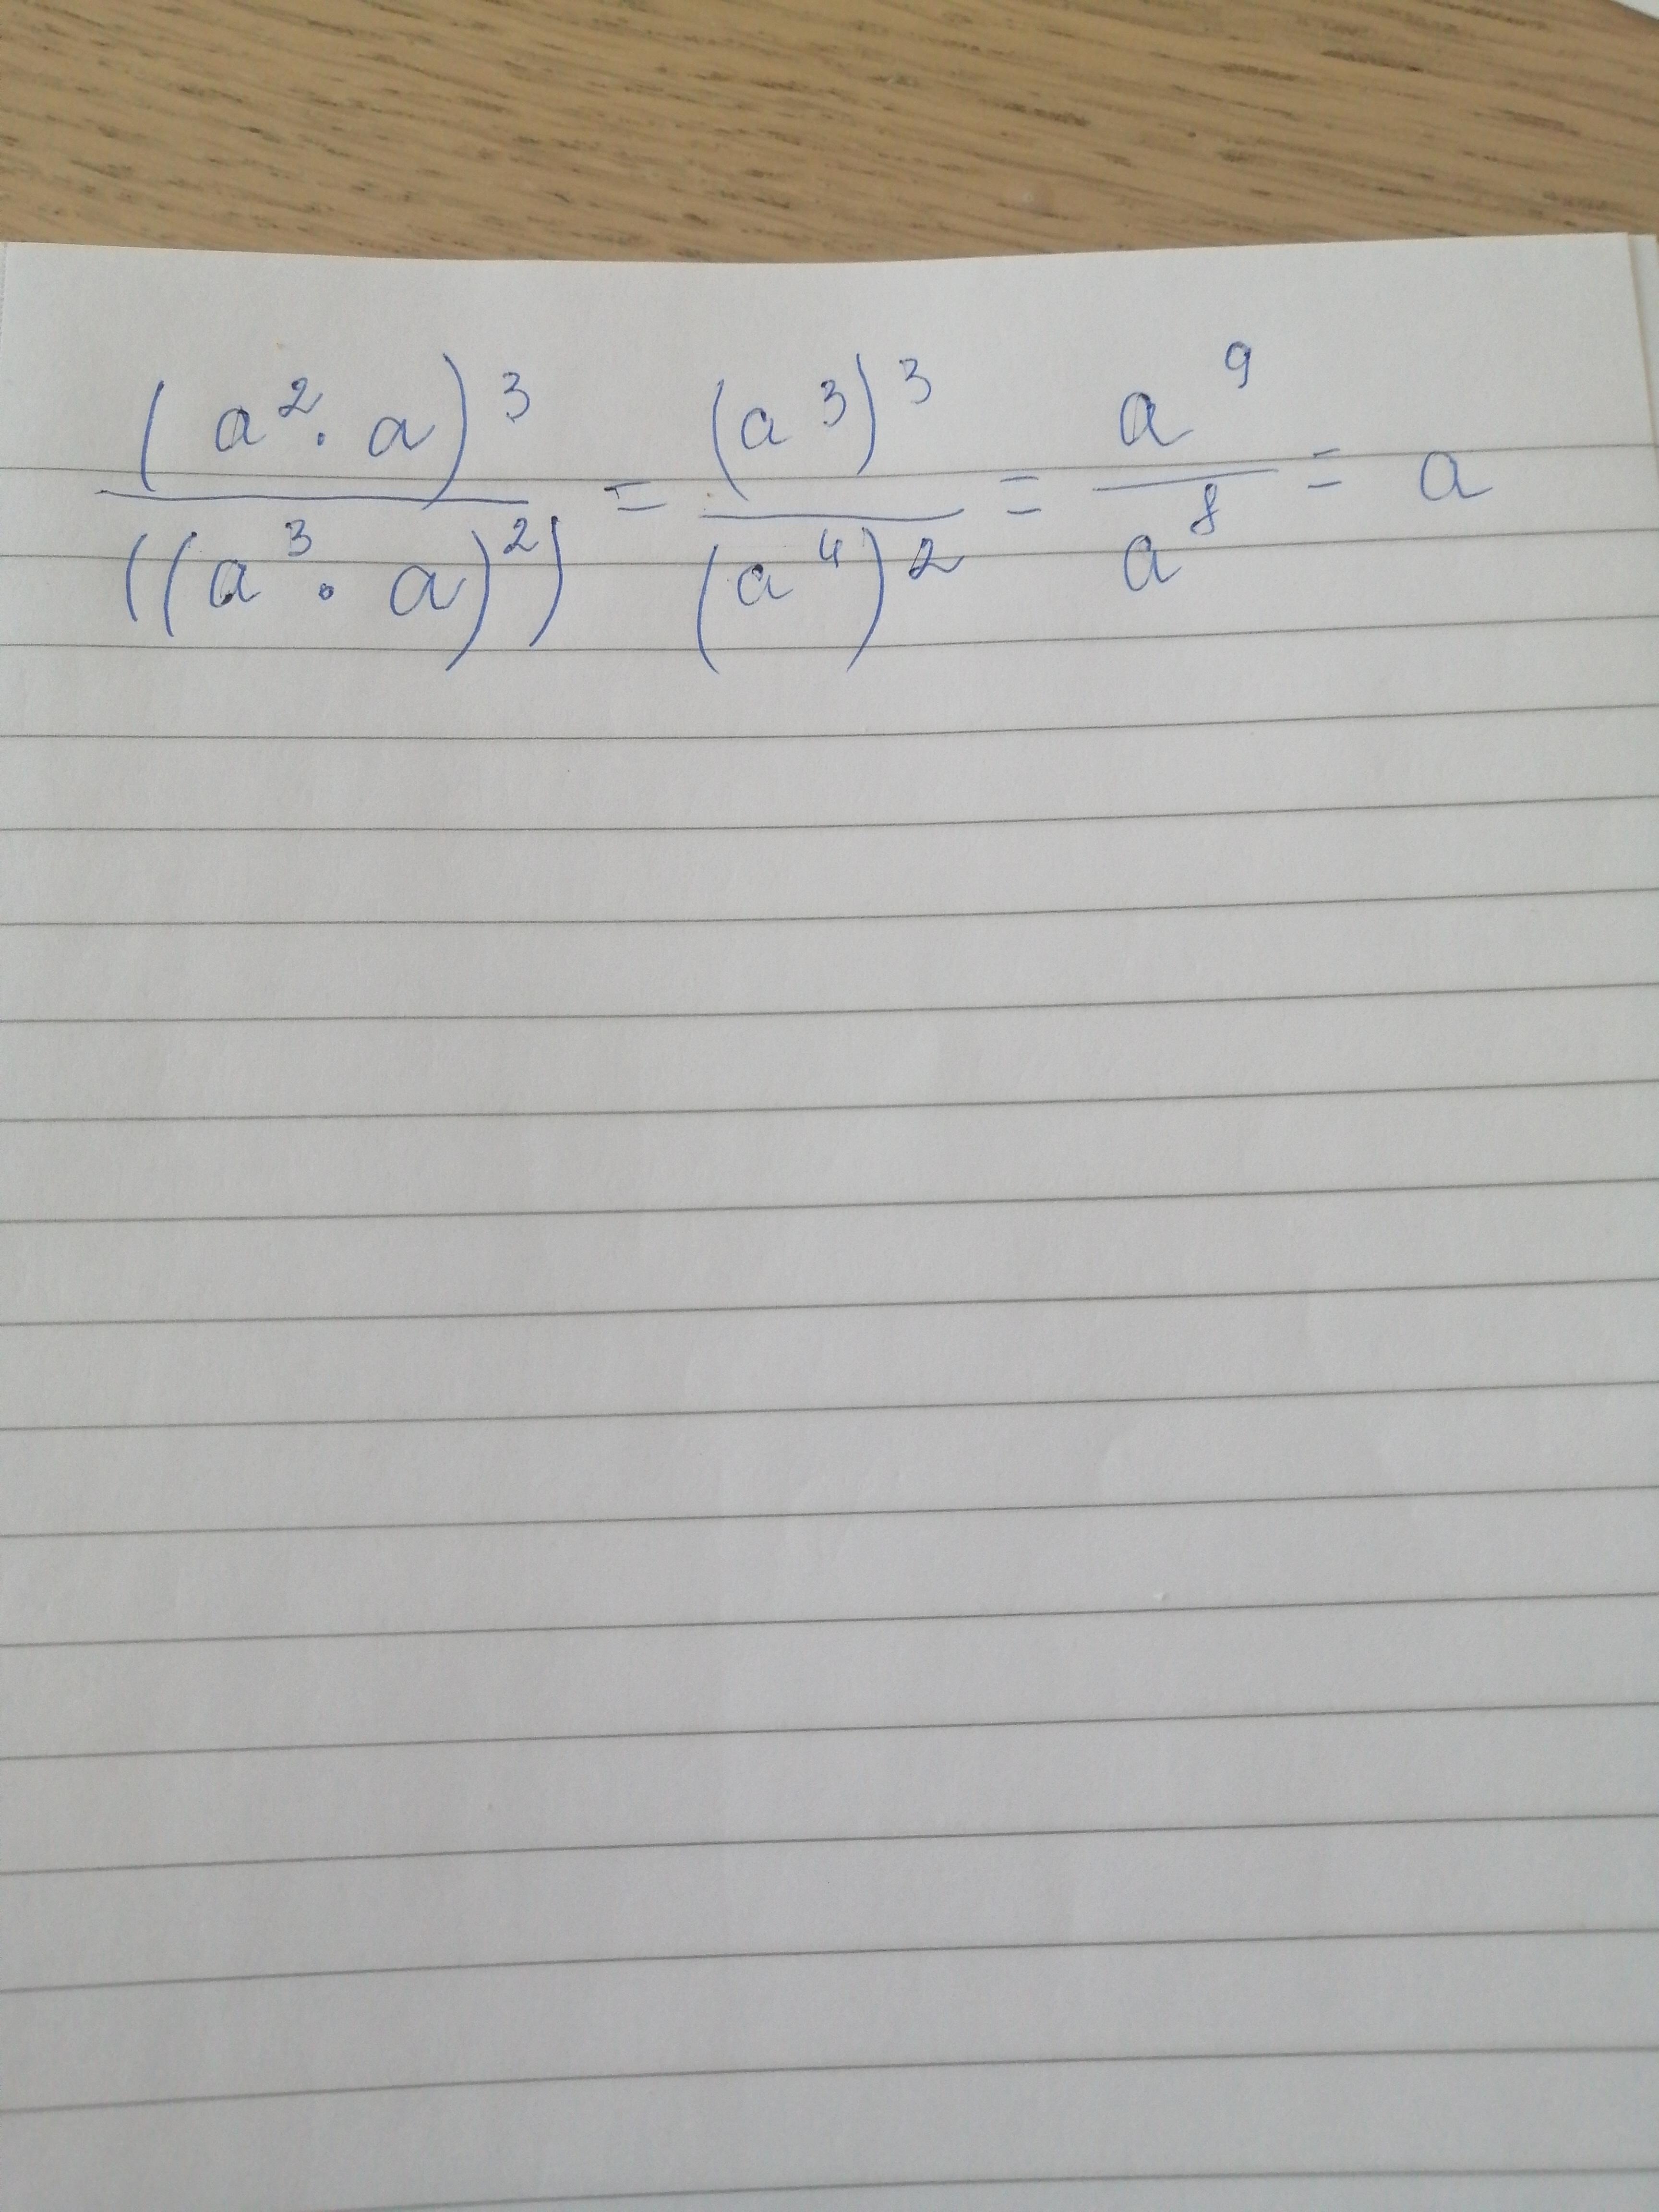 (a² · a)³ / ((a³ · a)²) = (a³)³ / (a⁴)² = a⁹ / a⁸ = a